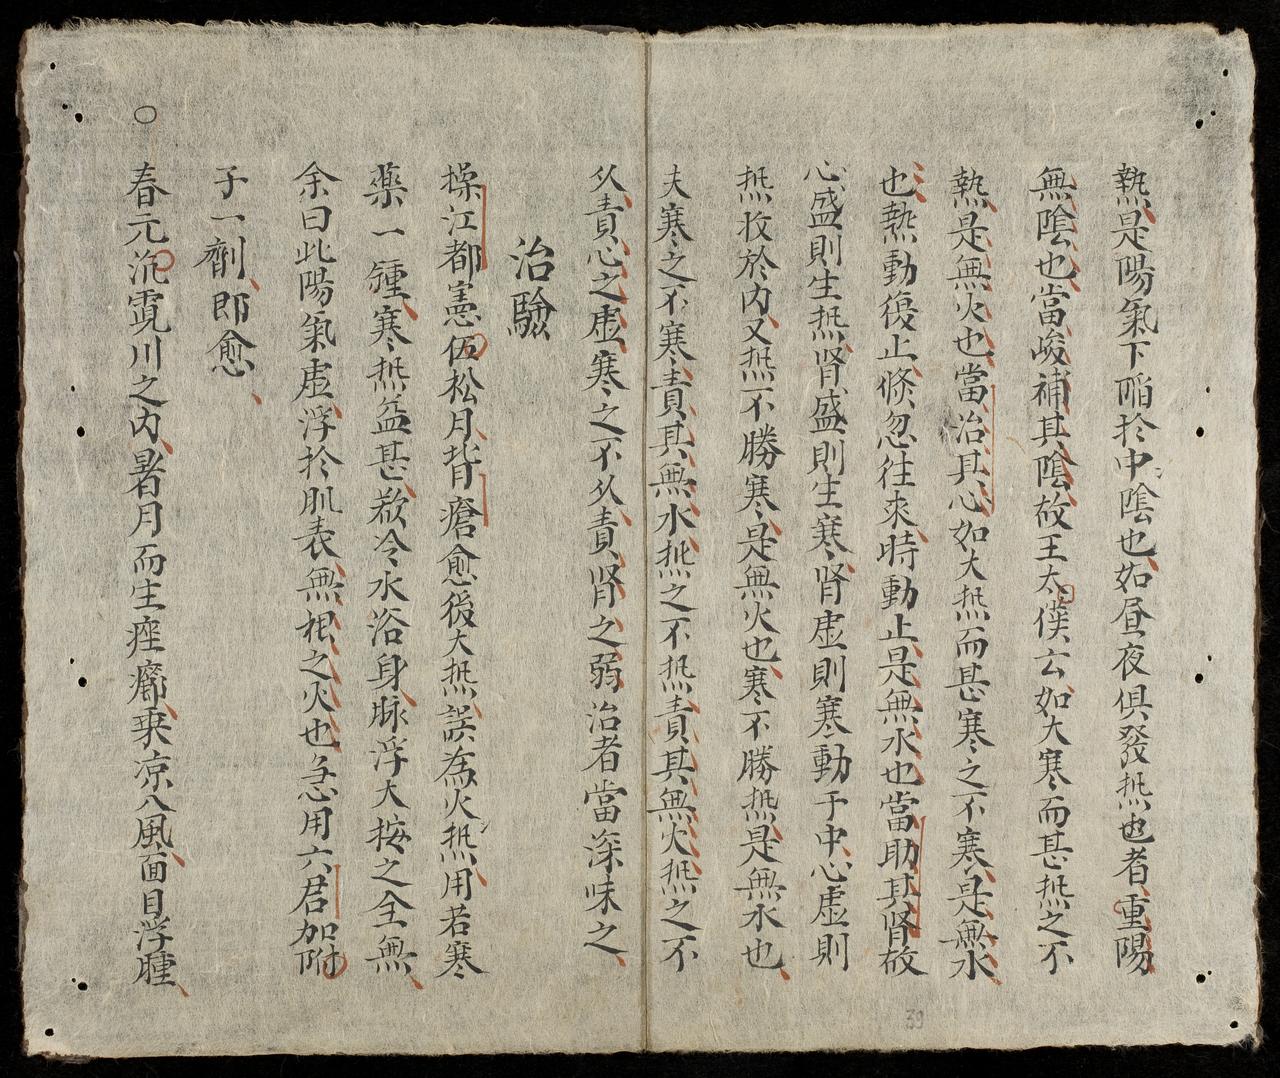 熱是陽氣下陷於中陰也如昼夜俱發热也者重陽
無陰也當峻補其陰故王太僕云如大寒而甚热之不
熱是無火也當治其心如大热而甚寒之不寒是無水
也熱動復止倏忽往來時動止是無水也當助其肾故
心盛則生热肾盛則生寒肾虚則寒動于中心虚則
热收於内又热不勝寒是無火也寒不勝热是無水也
夫寒之不寒責其無水热之不热責其無火热之不
久責心之虚寒之不久責肾之弱治者當深味之
治驗
操江都憲伍松月背瘡愈後大热誤為火热用若寒
藥一鍾寒热益甚欲冷水浴身脉浮大按之全無
余曰此陽氣虚浮於肌表無根之火也急用六君加附
子一劑即愈
〇春元沉霓川之内暑月而生痤痱乘凉入風面目浮腫
39